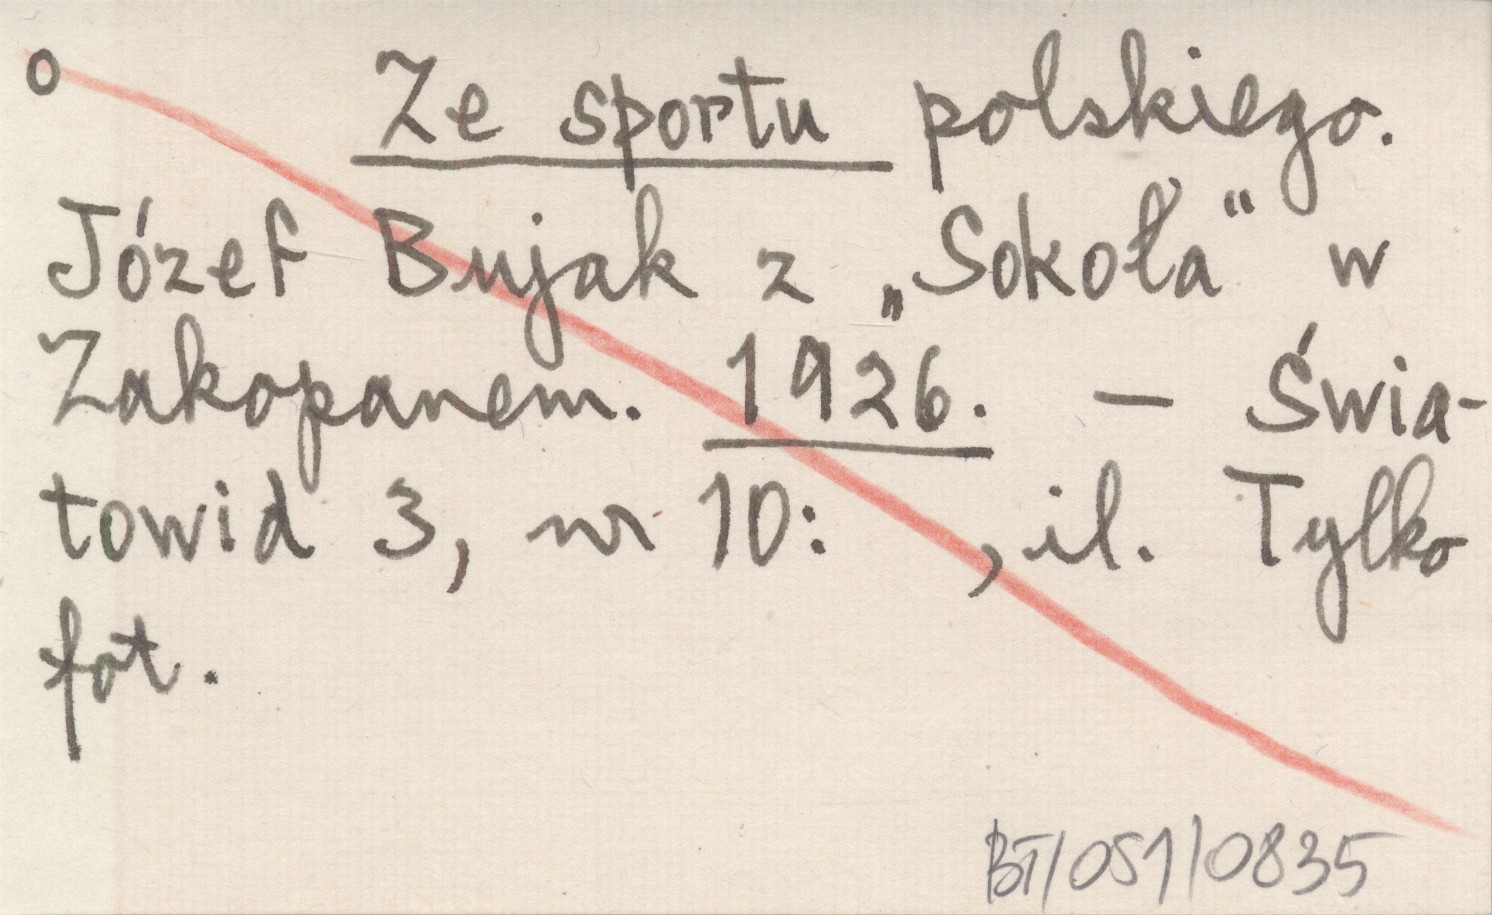 o Ze sportu polskiego.
Józef Bujak z „Sokoła" w
Zakopanem. 1926. — Świa-
towid 3, nr 10: , il. Tylko
fot.
BT/051/0835